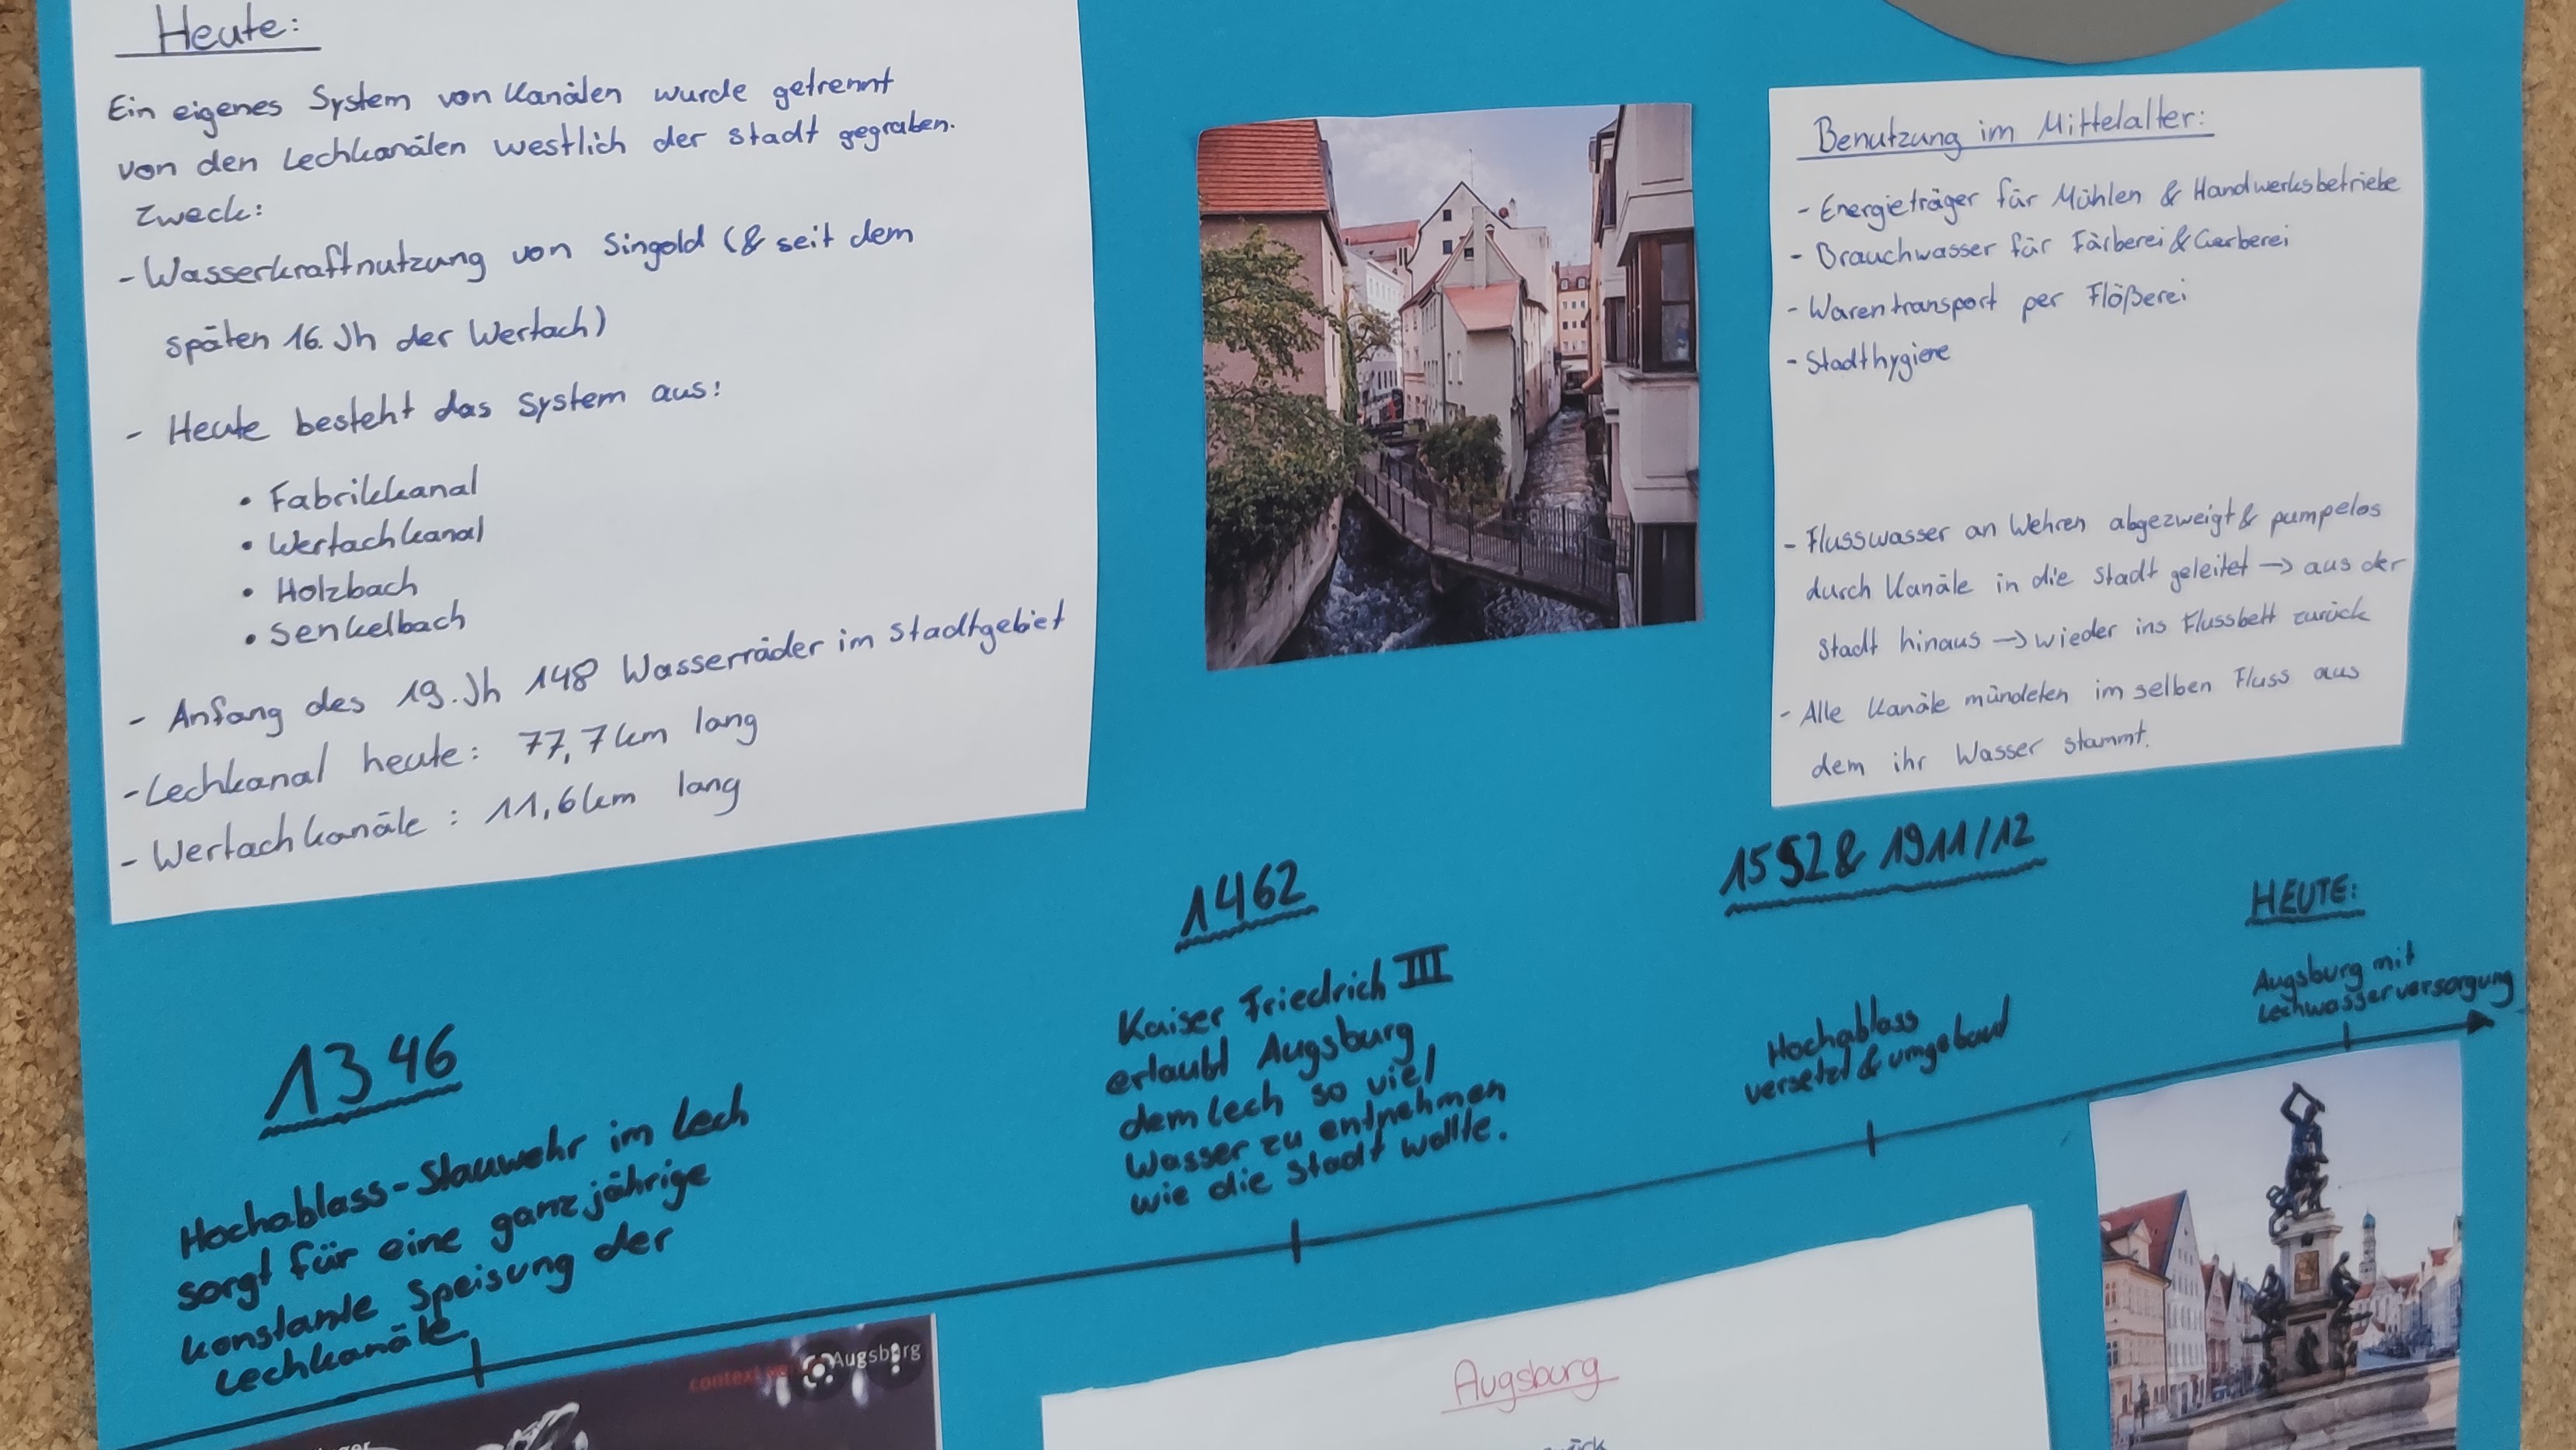 Heute:
Ein eigenes System von Kanälen wurde getrennt
von den Lechkanälen westlich der Stadt gegraben.
Zweck:
- Wasserkraftnutzung von Singold (& seit dem
späten 16. Jh der Wertach)
- Heute besteht das System aus:
• Fabrikkanal
• Wertachkanal
• Holzbach
• Senkelbach
- Anfang des 19. Jh 148 Wasserräder im Stadtgebiet
- Lechkanal heute: 77,7 km lang
- Wertachkanäle: 11,6 km lang
Benutzung im Mittelalter:
- Energieträger für Mühlen & Handwerksbetriebe
- Brauchwasser für Färberei & Gerberei
- Warentransport per Flößerei
- Stadthygiene
- Flusswasser an Wehren abgezweigt & pumpelos
durch Kanäle in die Stadt geleitet → aus der
Stadt hinaus → wieder ins Flussbett zurück
- Alle Kanäle mündeten im selben Fluss aus
dem ihr Wasser stammt.
1346
Hochablass-Stauwehr im Lech
sorgt für eine ganzjährige
konstante Speisung der
Lechkanäle
1462
Kaiser Friedrich III
erlaubt Augsburg
dem Lech so viel
Wasser zu entnehmen
wie die Stadt wollte.
1552 & 1911/12
Hochablass
versetzt & umgebaut
HEUTE:
Augsburg mit
Lechwasserversorgung
Augsburg
Augsburg